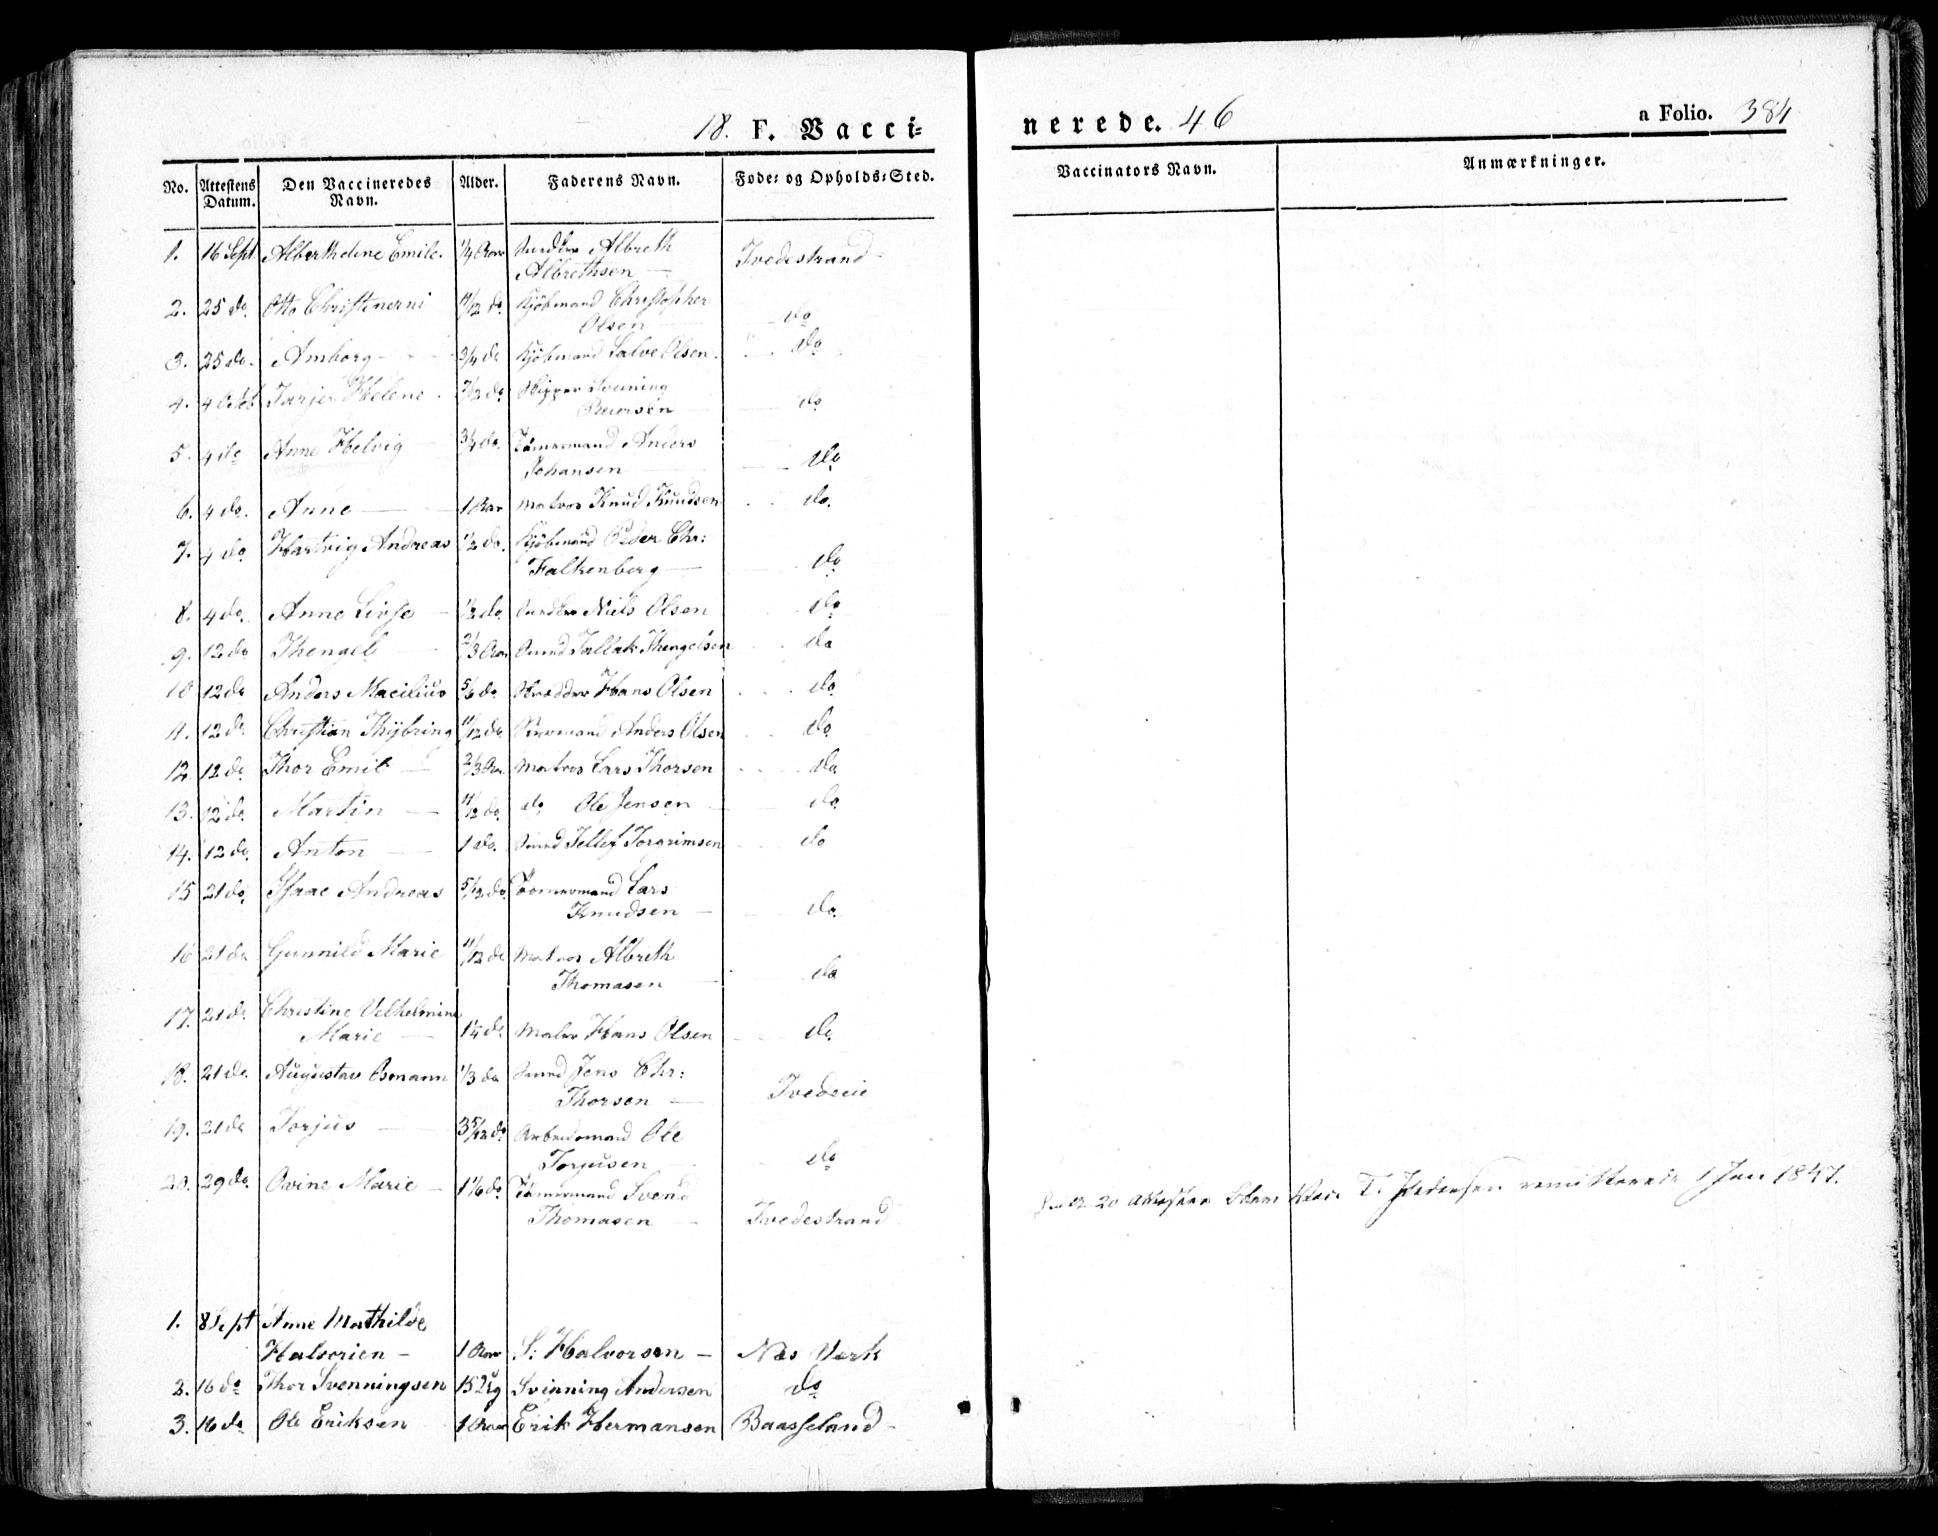 18. F. Vacci-
nerede. 46
a Folio. 384
No. Attestens Datum. Den Vaccineredes Navn. Alder. Faderens Navn. Føde- og Opholds-Sted.
Vaccinators Navn. Anmærkninger.
1. 16 Sept Alberthdine Emile. 1/4 Aar Albreth
Albrethsen — Tvedestrand
2. 25 do Otto 11/12 do Kjöbmand Christopher
Olsen — do
3. 25 do. Amborg — 3/4 do Kjöbmand Salve Olsen. do
4. 4 Octob Tarjer Helene. 7/12 do Skipper Svening
Reiersen — do
5. 4 do Anne Helvig — 3/4 do. Tömmermand Anders
Johansen — do
6. 4 do. Anne — 1 Aar Matros Knud Knudsen do.
7. 4 do Hartvig Andreas 1/2 do. Kjöbmand Peder Chr:
Falkenberg — do
8. 4 do. Anne Livse — 1/2 do Niels Olsen do
9. 12 do Thengel — 2/3 Aar Tallak Thengelsen do
10 12 do Anders Macilius 5/6 do Hans Olsen do
11. 12 do Christian Thybring 11/12 do Anders Olsen do
12. 12 do Thor Emil — 2/3 Aar Matros Lars Thorsen do
13. 12 do. Martin — 11/12 do. do Ole Jensen do
14. 12 do. Anton — 1 do. Smed Tellef Torgrimsen do
15 21 do Isaac Andreas 5/12 do Tömmermand Lars
Knudsen — do.
16 21 do Gunnild Marie 11/12 do Matros Albreth
Thomasen do
17. 21 do Christine Velhelmine
Marie — 1 1/4 do Maler Hans Olsen do.
18. 21 do. Augustav Osmann 1/3 do Smed Jens Chr:
Thorsen — Tvedeeie
19. 21 do Torjus — 3 5/12 do Arbeidsmand Ole
Torjusen do
20. 29 do. Ovine Marie — 1 1/6 do Tömmermand Svend
Thomasen — Tvedestrand
20 Attester T. Pedersen remitterede 1 Jan 1847.
1. 8 Sept Anne Mathilde
Halvorsen — 1 Aar S: Halvorsen — Næs Værk
2. 16 do Thor Svenningsen 15 Ug Svenning Andersen do
3. 16 do Ole Eriksen 1 Aar Erik Hermansen Baasseland —